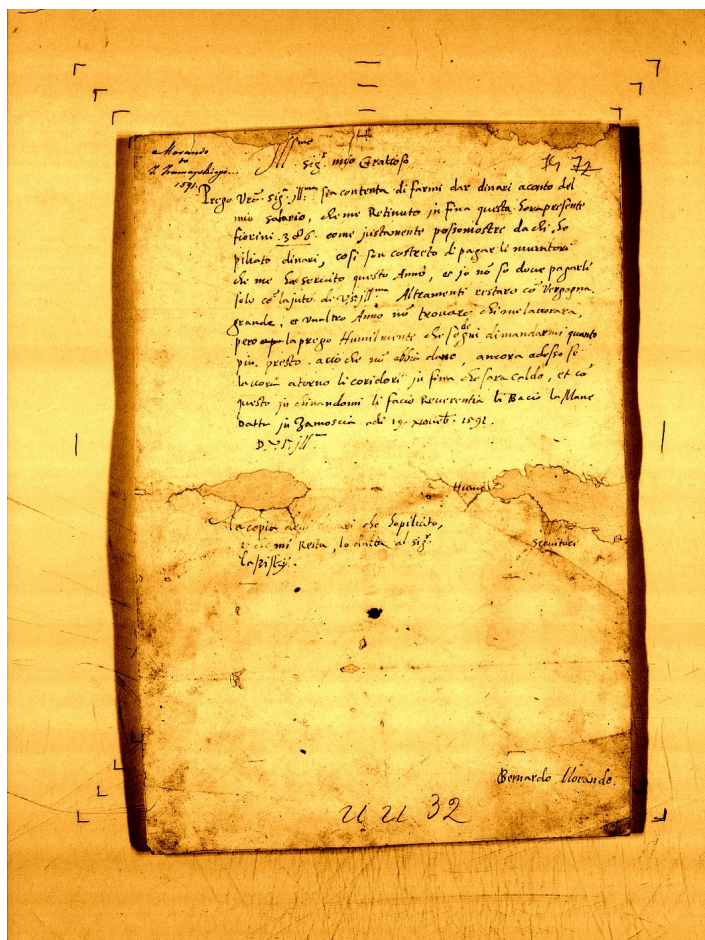 Morando
to
J. Zamoyskiego
1591
Ill.mo
Sig.r mio Gratioso
14 72
Prego Vra. Sig. Ill.ma sia contenta di farmi dar dinari aconto del
mio salario, che me Retinuto in fina questa hora presente
fiorini .386. come justamente possomostre da chi ho
piliato dinari, cosi son costreto di pagar li muratori
che me ha servito questo Anno, et jo nõ so dove pagarli
solo cõ lajuto di V.S. Ill.ma Altramenti restaro cõ Vergogna
grande, et vnaltro Anno nõ trovare chi me lavorara,
pero la prego Humilmente che se degni di mandarmi quanto
piu presto. acio che nõ abbia dano, ancora adesso se
lavora atorno li coridori in fina che sara caldo, et cõ
questo in chinandomi li facio Reverentia li Bacio la Mane
Datta in Zamoscia adi 19. Novẽb. 1591.
D. V. S. Ill.ma
Humil
la copia dinari che ho piliato,
mi Resta, lo datta al Sig.r
Servitori
Bernardo Morando.
U U 32